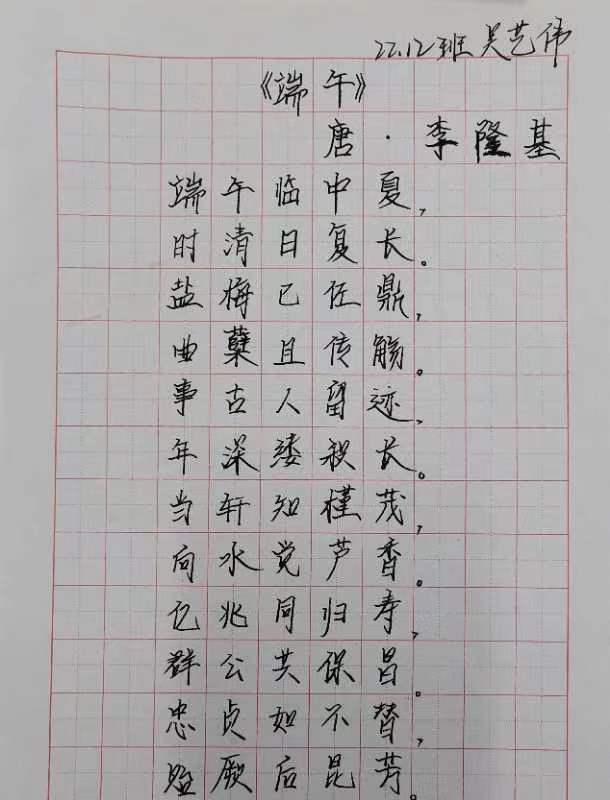 22.12班吴艺伟
《端午》
唐·李隆基
端午临中夏,
时清日复长。
盐梅已佐鼎,
曲糵且传觞。
事古人留迹,
年深缕积长。
当轩知槿茂,
向水觉芦香。
亿兆同归寿,
群公共保昌。
忠贞如不替,
贻厥后昆芳。